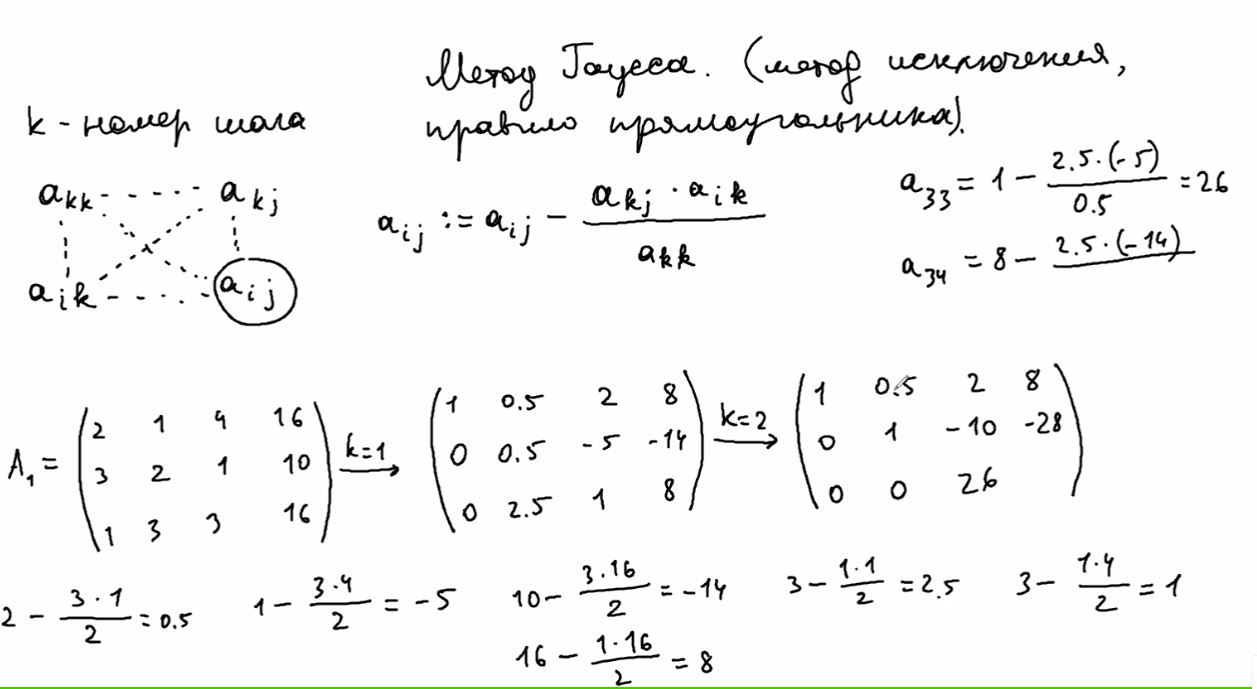 Метод Гаусса. (метод исключения,
правило прямоугольника).
k - номер шага
a_kk a_kj
a_ik a_ij
a_ij := a_ij - (a_kj · a_ik) / a_kk
a_33 = 1 - (2.5·(-5)) / 0.5 = 26
a_34 = 8 - 2.5·(-14)
A_1 = ( 2 1 4 16 ) k=1 → ( 1 0.5 2 8 ) k=2 → ( 1 0.5 2 8 )
( 3 2 1 10 ) ( 0 0.5 -5 -14 ) ( 0 1 -10 -28 )
( 1 3 3 16 ) ( 0 2.5 1 8 ) ( 0 0 26 )
2 - (3·1) / 2 = 0.5 1 - (3·4) / 2 = -5 10 - (3·16) / 2 = -14 3 - (1·1) / 2 = 2.5 3 - (1·4) / 2 = 1
16 - (1·16) / 2 = 8